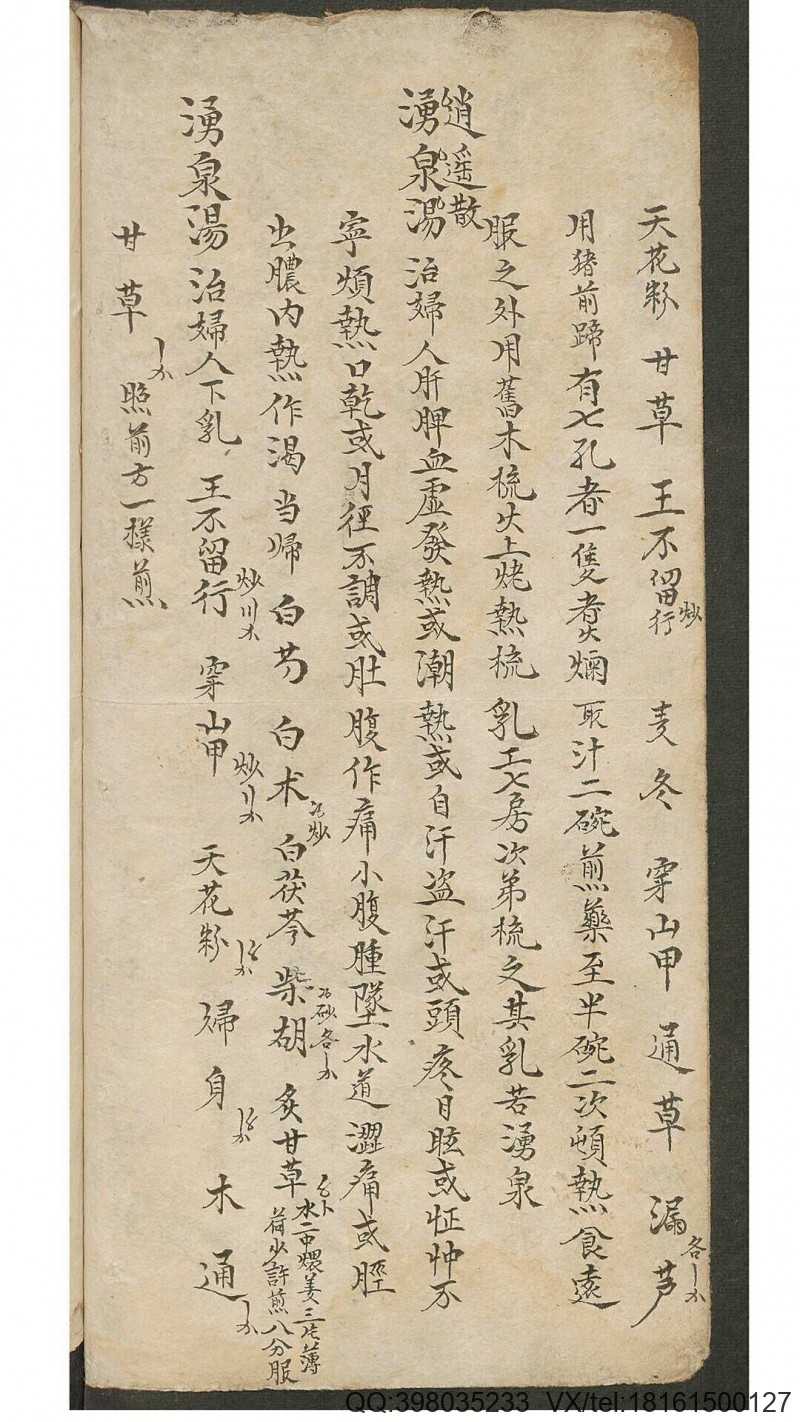 天花粉 甘草 王不留行炒 麦冬 穿山甲 通草 漏芦各
用猪前蹄有七孔者一隻煮爛取汁二碗煎藥至半碗二次頓熱食遠
服之外用舊木梳火上烤熱梳乳工七房次弟梳之其乳若湧泉
逍遥散
湧泉湯 治婦人肝脾血虚發熱或潮熱或自汗盗汗或頭疼目眩或怔忡不
寧煩熱口乾或月徑不調或肚腹作痛小腹腫墜水道澀痛或脛
出膿内熱作渴当帰白芍白术炒白茯苓柴胡各炙甘草
水二中煨姜三片薄
荷少許煎八分服
湧泉湯治婦人下乳 王不留行炒 穿山甲炒 天花粉 帰身 木通
甘草 照前方一樣煎
QQ:398035233 VX/tel:18161500127